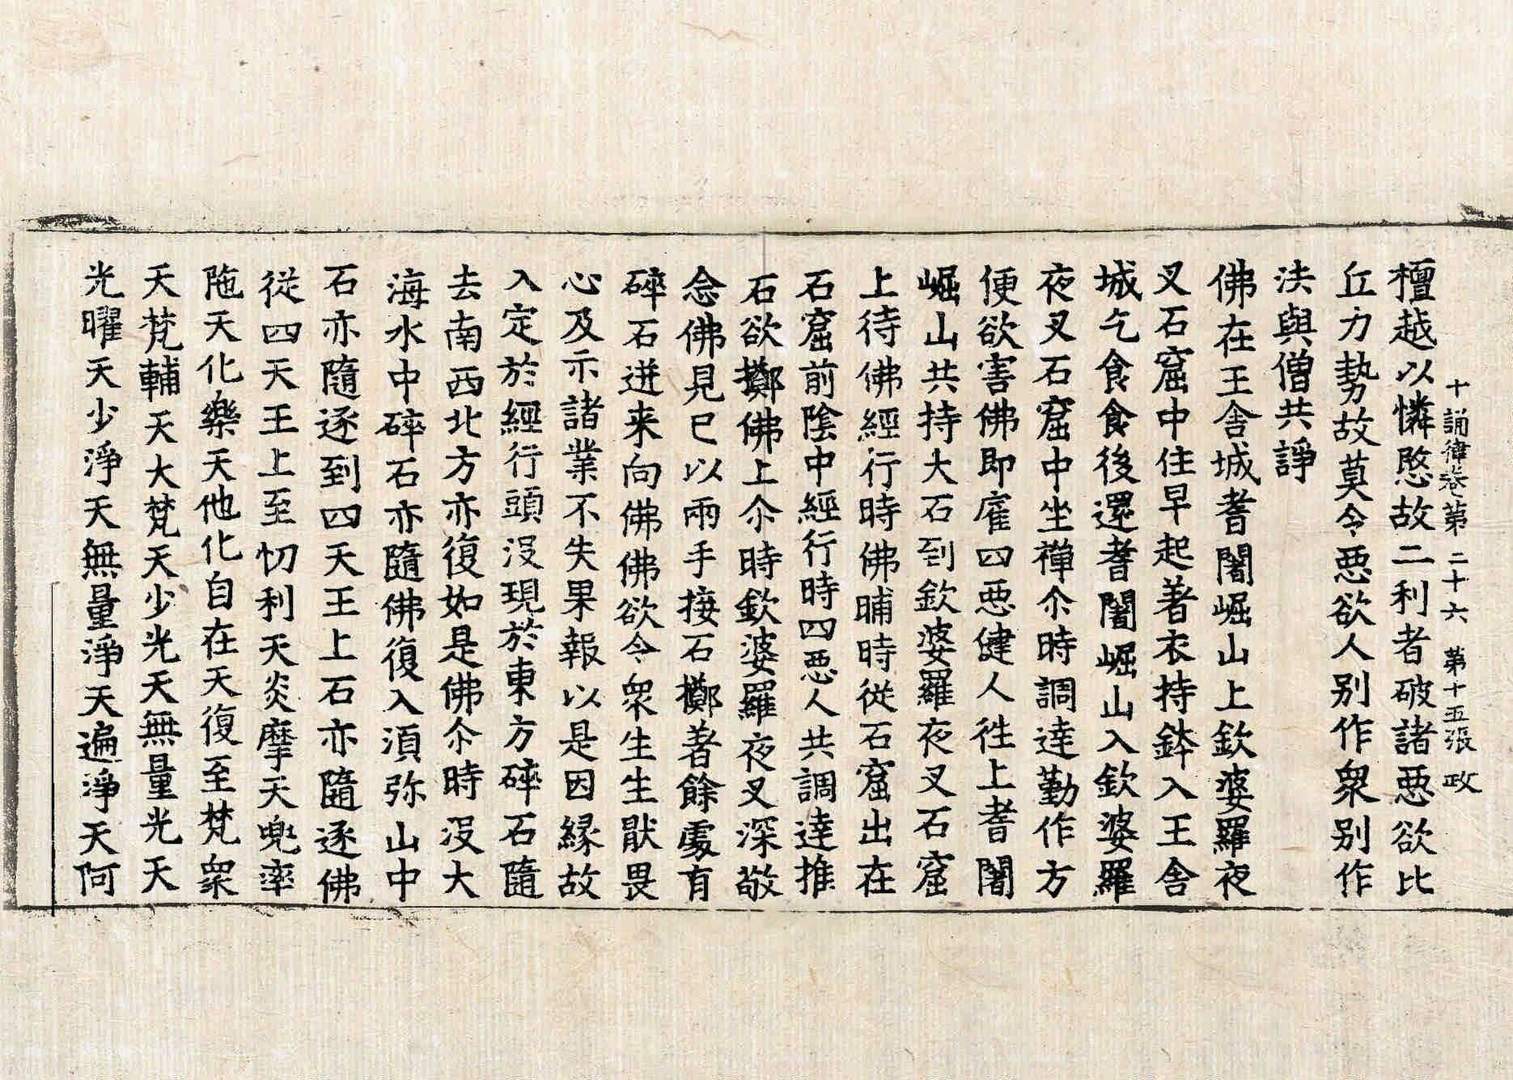 十誦律卷第二十六 第十五張 政
檀越以憐愍故二利者破諸惡欲比
丘力勢故莫令惡欲人別作衆別作
法與僧共諍
佛在王舍城耆闍崛山上欽婆羅夜
叉石窟中住早起著衣持鉢入王舍
城乞食食後還耆闍崛山入欽婆羅
夜叉石窟中坐禪尒時調達勤作方
便欲害佛即雇四惡健人徃上耆闍
崛山共持大石到欽婆羅夜叉石窟
上待佛經行時佛晡時從石窟出在
石窟前陰中經行時四惡人共調達推
石欲擲佛上尒時欽婆羅夜叉深敬
念佛見已以兩手接石擲著餘處有
碎石迸来向佛佛欲令衆生生猒畏
心及示諸業不失果報以是因縁故
入定於經行頭沒現於東方碎石隨
去南西北方亦復如是佛尒時沒大
海水中碎石亦隨佛復入湏弥山中
石亦隨逐到四天王上石亦隨逐佛
從四天王上至忉利天炎摩天兜率
陁天化樂天他化自在天復至梵衆
天梵輔天大梵天少光天無量光天
光曜天少淨天無量淨天遍淨天阿